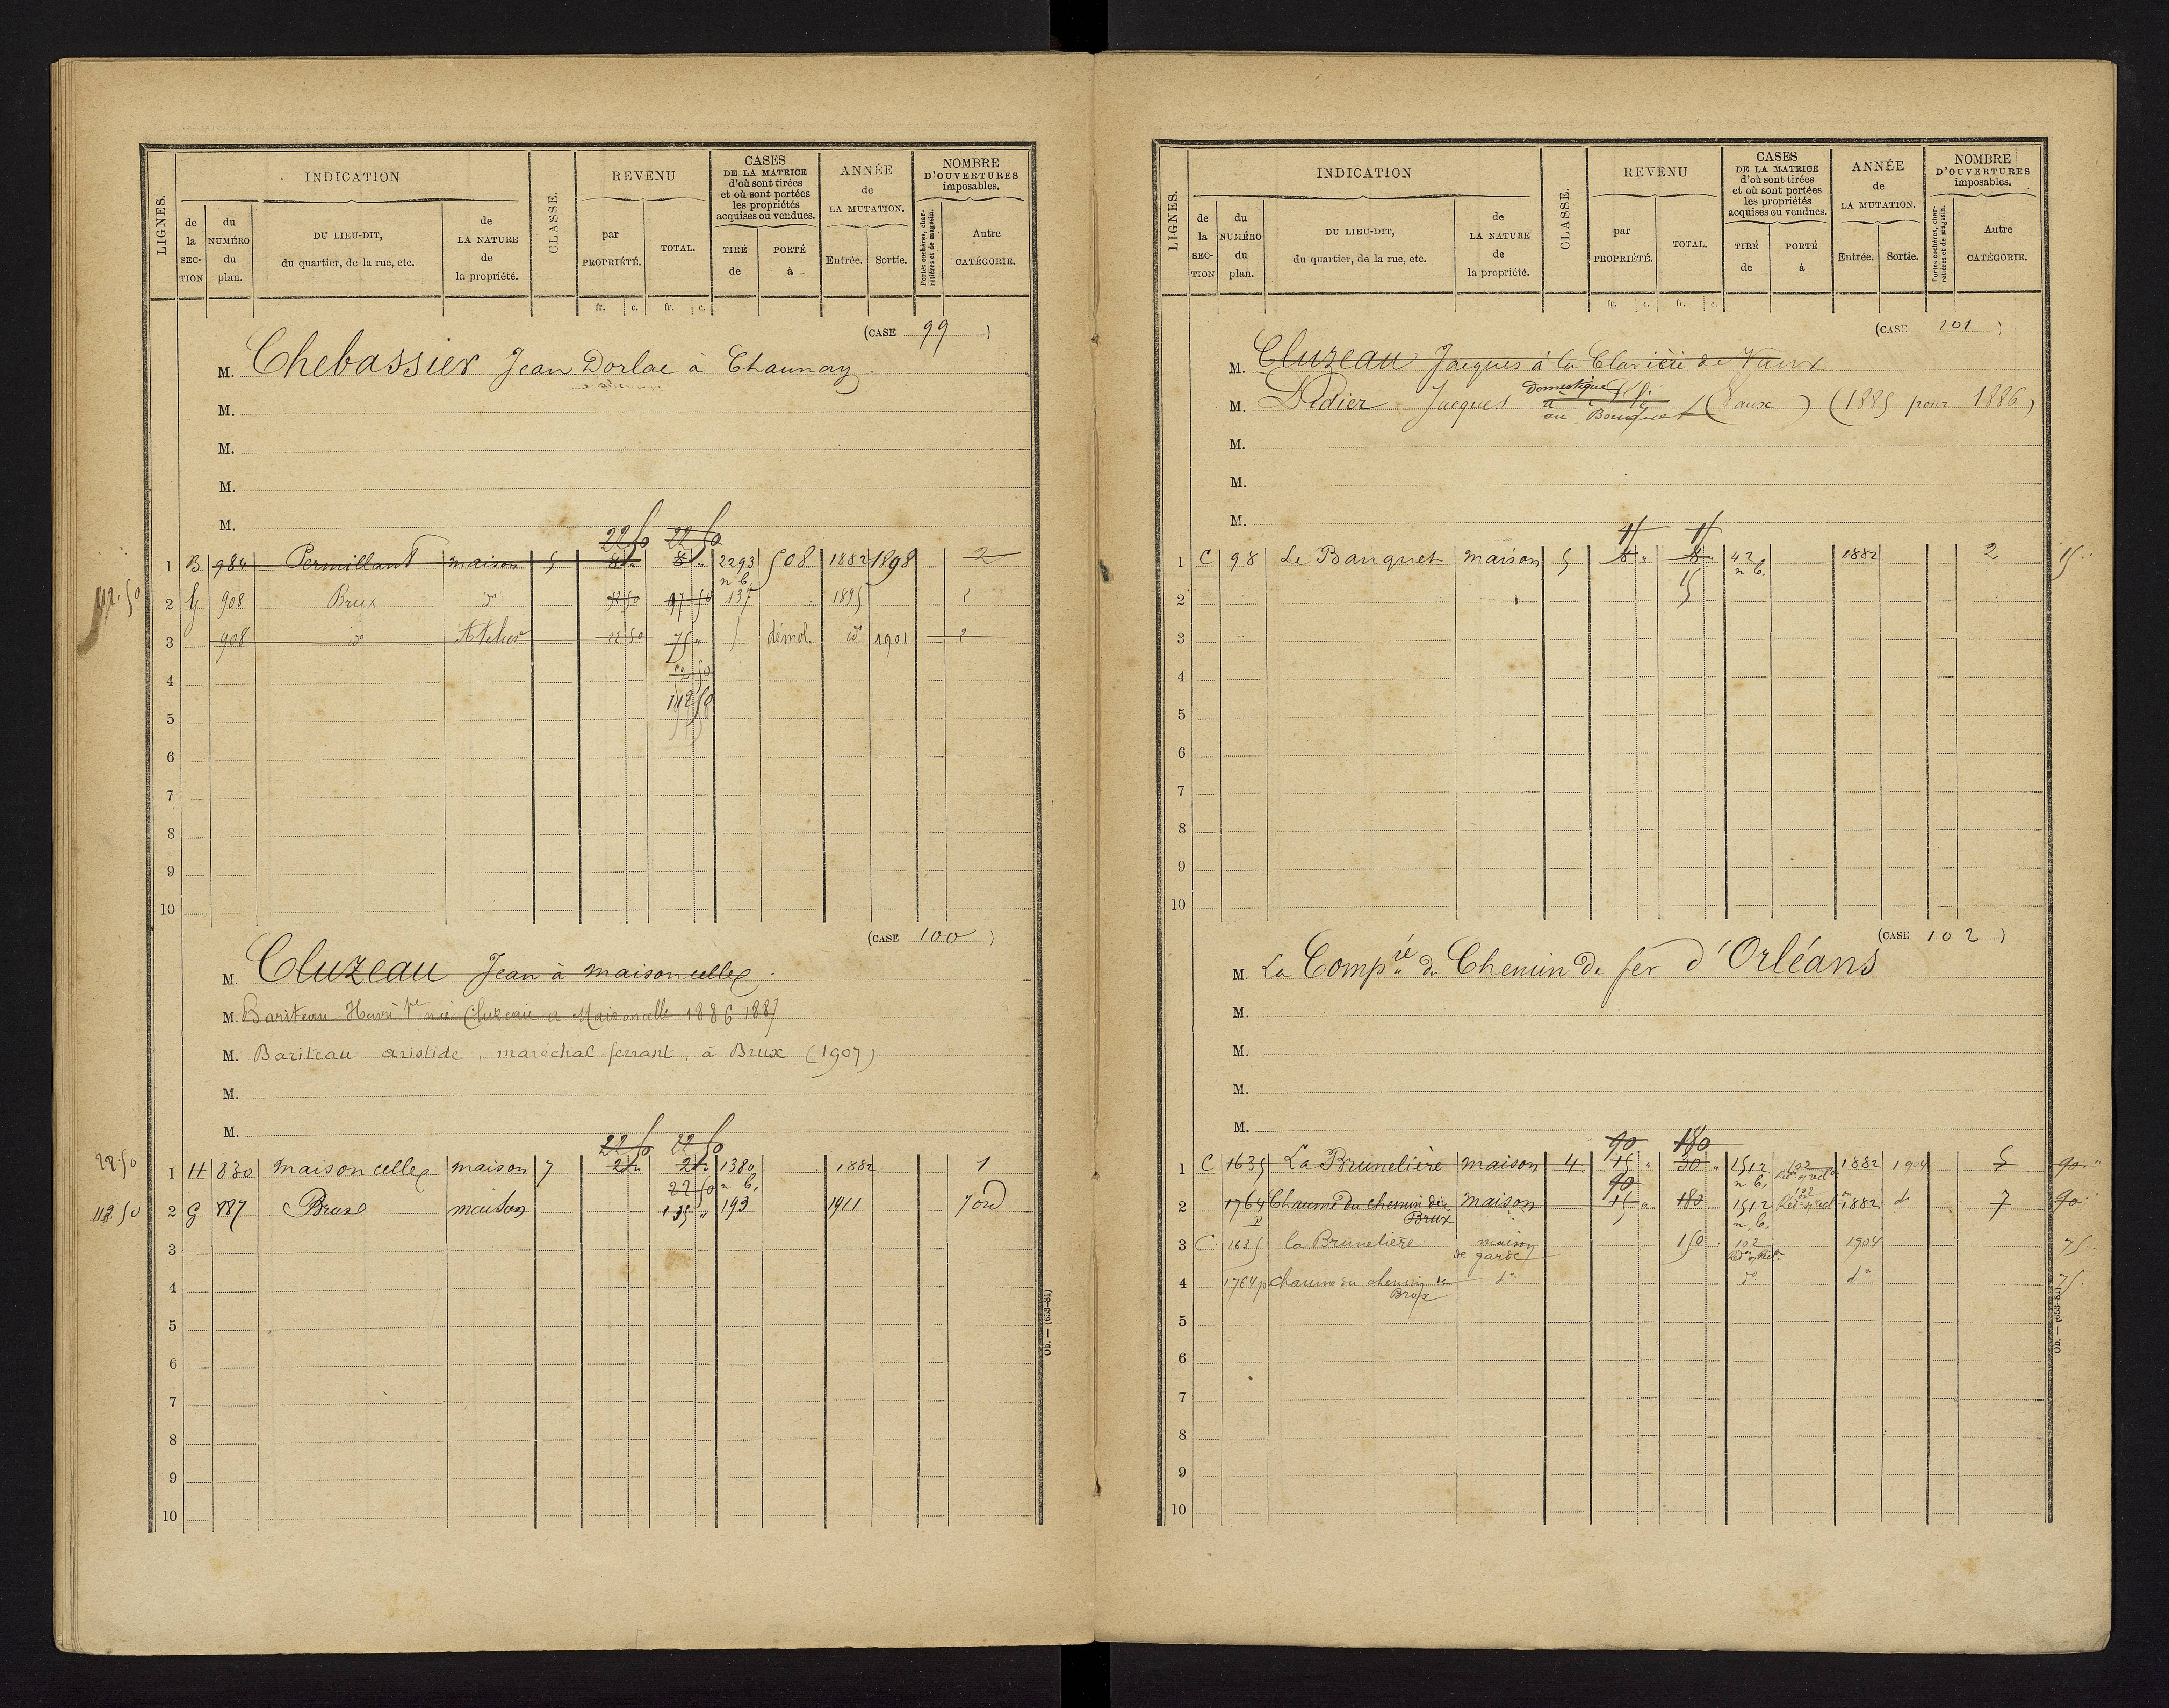 LIGNES.
INDICATION
de la SECTION
du NUMÉRO du plan.
DU LIEU-DIT, du quartier, de la rue, etc.
de LA NATURE de la propriété.
CLASSE.
REVENU
par PROPRIÉTÉ.
TOTAL.
CASES DE LA MATRICE d'où sont tirées et où sont portées les propriétés acquises ou vendues.
TIRÉ de
PORTÉ à
ANNÉE de LA MUTATION.
Entrée.
Sortie.
NOMBRE D'OUVERTURES imposables.
Portes cochères, charretières et de magasin.
Autre CATÉGORIE.
fr. c. fr. c.
(CASE 99 )
M. Chebassier Jean Dorlac à Chaunay
M.
M.
M.
M.
22 50 22 50
1 B 984 maison 5 8 " 8 " 2293 508 1882 1898 2
n b.
112.50 2 G 908 Brux do 97 50 137 1895 2
3 908 do Atelier 22 50 75 " démol. do 1901 2
4 52 50
5 112 50
6
7
8
9
10
(CASE 100 )
M. Cluzeau Jean à maisoncelles.
M. Bariteau Henri née Cluzeau à Maisoncelle 1886 1887
M. Bariteau aristide, maréchal ferrant, à Brux (1907)
M.
M.
22 50 22 50
22 50 1 H 830 maisoncelles maison 7 1380 1882 1
22 50 n b.
112.50 2 G 887 Brux maison 135 " 193 1911
3
4
5
6
7
8
9
10
Ob. — (653-81)
LIGNES.
INDICATION
de la SECTION
du NUMÉRO du plan.
DU LIEU-DIT, du quartier, de la rue, etc.
de LA NATURE de la propriété.
CLASSE.
REVENU
par PROPRIÉTÉ.
TOTAL.
CASES DE LA MATRICE d'où sont tirées et où sont portées les propriétés acquises ou vendues.
TIRÉ de
PORTÉ à
ANNÉE de LA MUTATION.
Entrée.
Sortie.
NOMBRE D'OUVERTURES imposables.
Portes cochères, charretières et de magasin.
Autre CATÉGORIE.
fr. c. fr. c.
(CASE 101 )
M. Cluzeau Jacques à la Clavière de Vaux
Domestique
M. Didier Jacques (Vaux) (1885 pour 1886)
au Bouquet
M.
M.
M.
1 C 98 Le Banquet maison 5 8 " 8 " 42 1882 2 15
n b.
2 15
3
4
5
6
7
8
9
10
(CASE 102 )
M. La Compie du Chemin de fer d'Orléans
M.
M.
M.
M.
90 180
1 C 1635 La Brunelière maison 4 15 " 30 " 1512 102 1882 1904 5 90 "
n b.
90
2 1764 p Chaume du chemin de Brux maison 15 " 180 1512 102 1882 do 7 90
n b.
3 C 1635 la Brunelière maison de garde 150 102 1904 75
4 1764p chaume du chemin de Brux do do do 75
5
6
7
8
9
10
Ob. — (653-81)